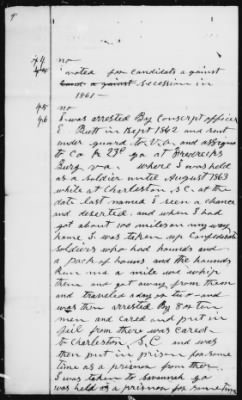 9
44 no
voted for candidate against
secession in
1861 —
45 no
46 I was arrested By Conscript officer
E Brett in Sept 1862 and sent
under guard to V.a. and assigned
to Co K 27th ga at Fredericks
Burg v.a. where I was held
as a soldier until August 1863
while at Charleston, S.C. at the
date last named I seen a chance
and deserted. and when I had
got about 100 miles on my way
home I was taken up Confederate
soldiers who had hounds and
a Pack of hounds and the hounds
run me a mile and whip
them and got away from them
and traveled a day or two and
was then arrested By 8 or ten
men and caried and put in
jail from there was caried
to Charleston, S.C and was
then put in prison for some
time as a prison from ther
I was taken to Savanah ga
was held as a prison for some time